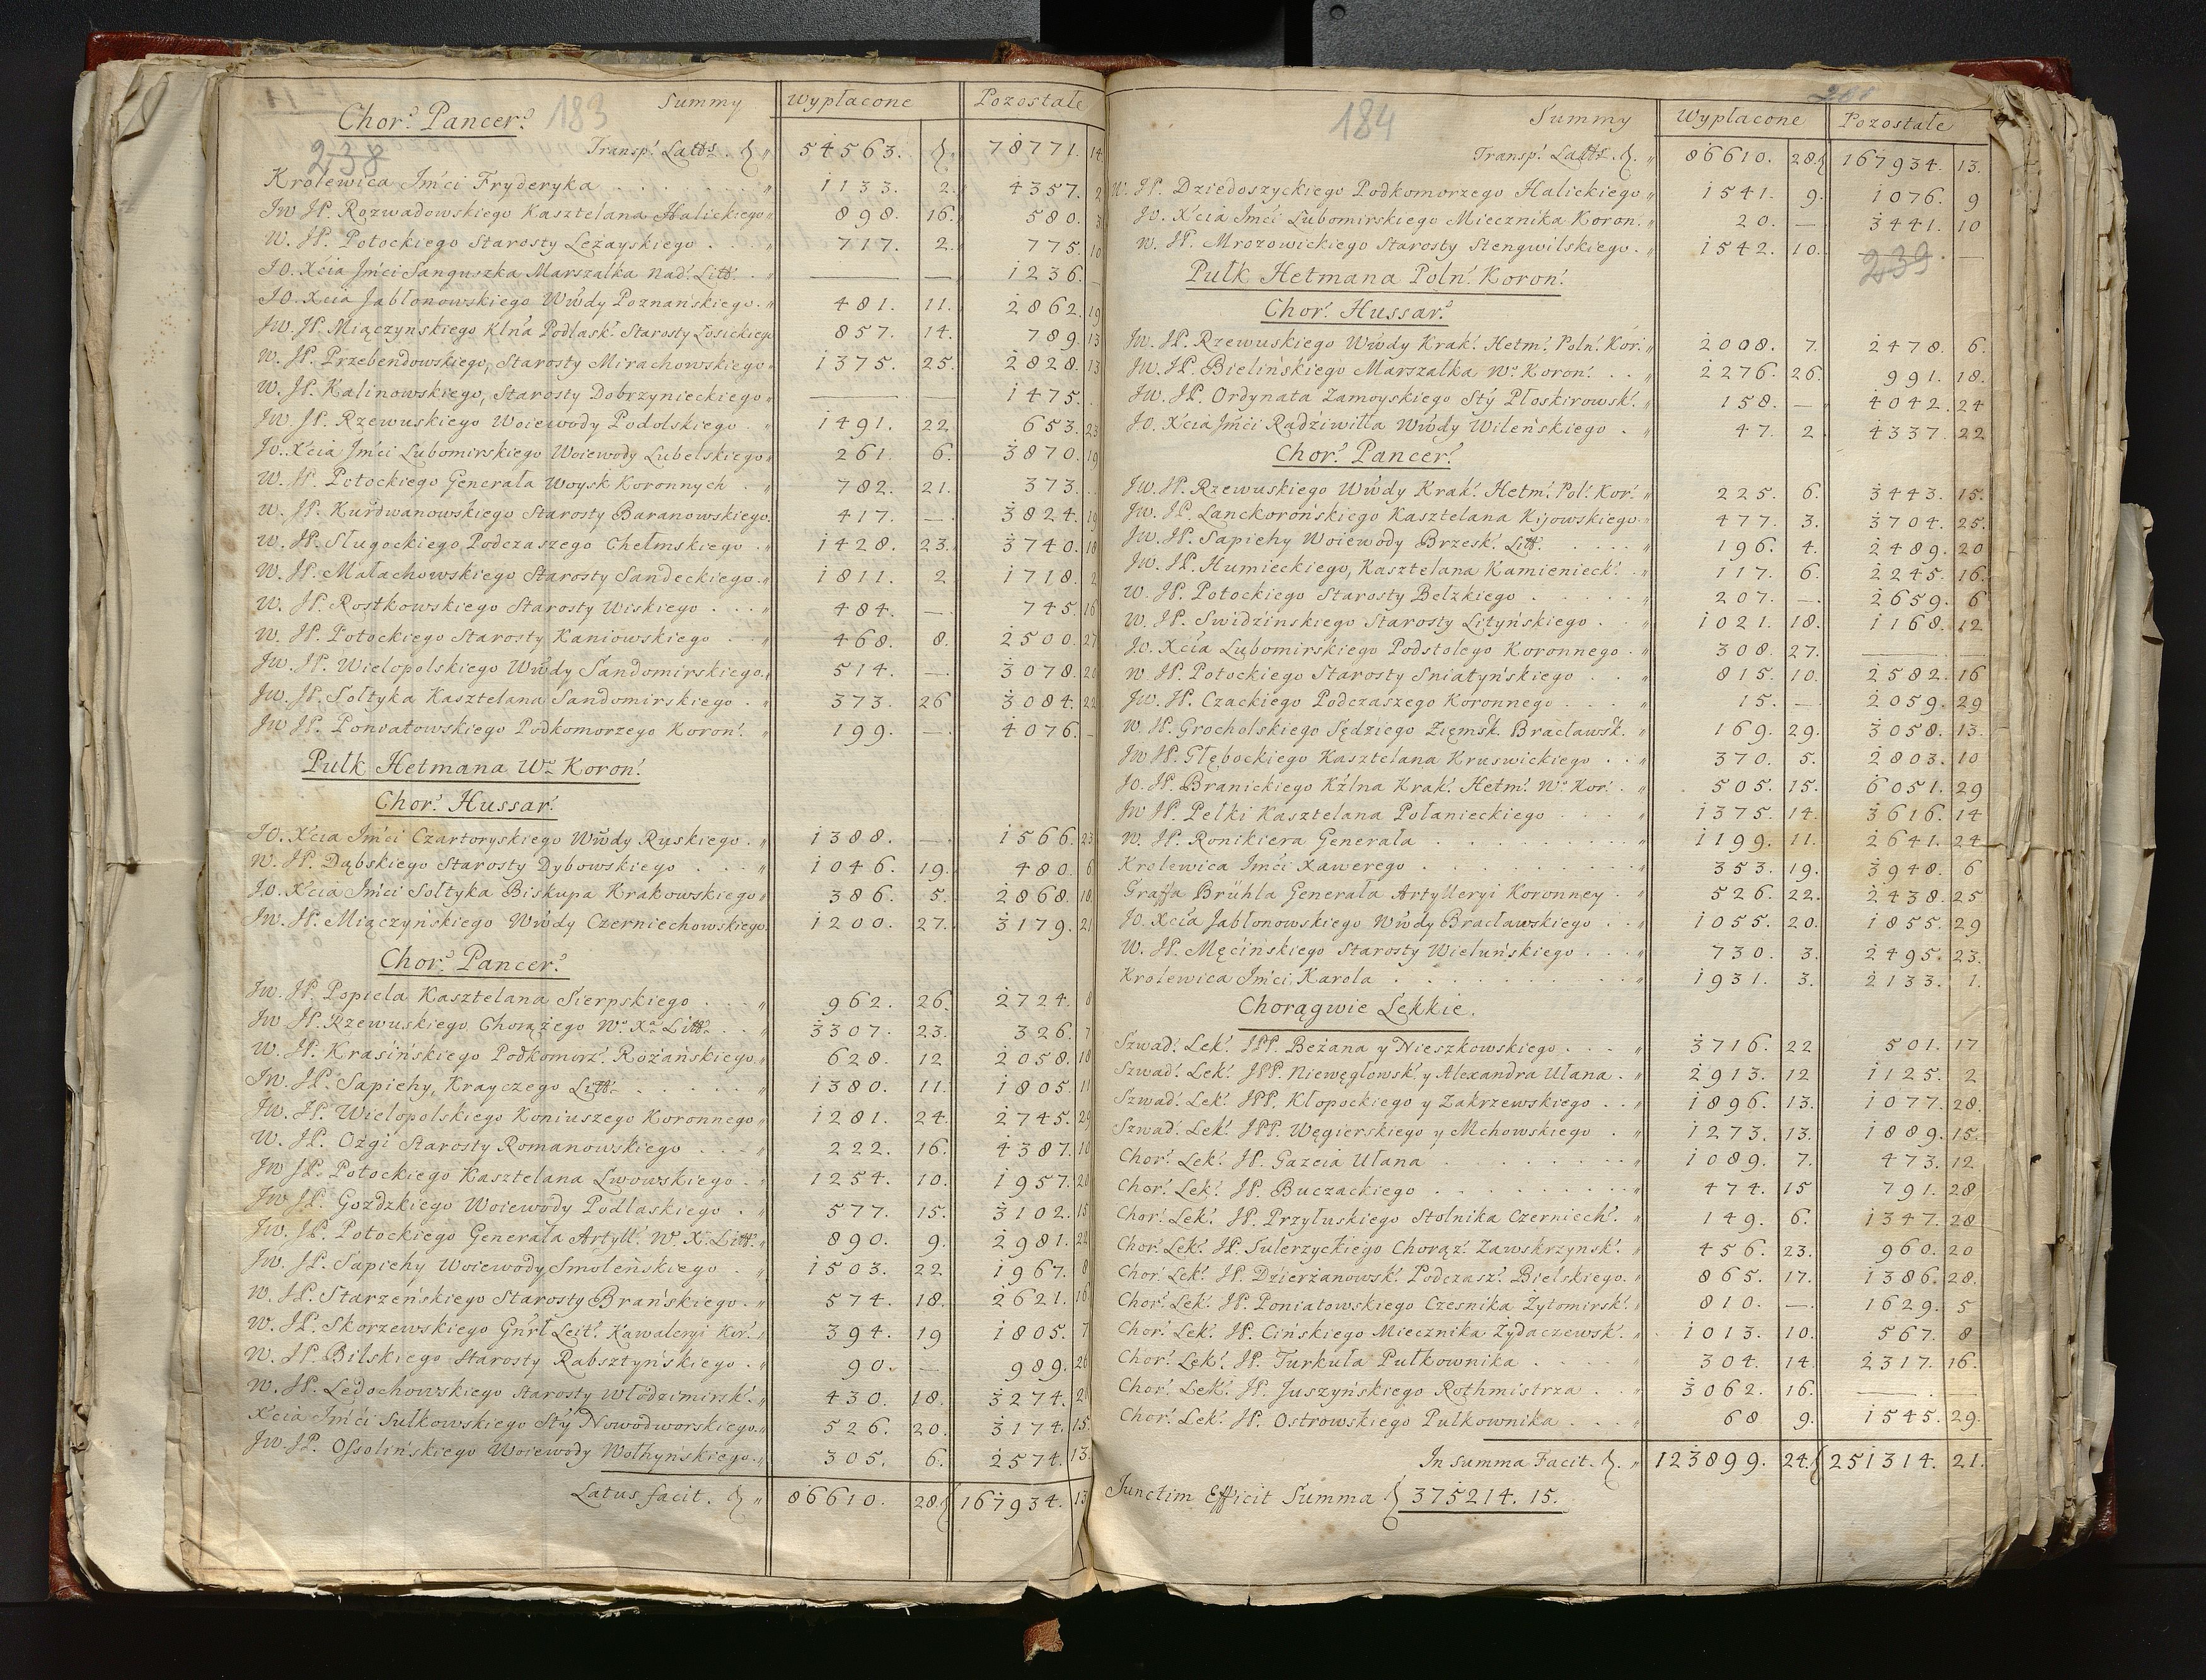 Chor: Pancer: 183 Summy Wypłacone Pozostałe
238 Transp: Latts . 54563. 78771. 14
Krolewica Jmći Fryderyka 1133. 2. 4357. 2
Jw JP. Rozwadowskiego Kasztelana Halickiego 898. 16. 580. 3
W. JP. Potockiego Starosty Leżayskiego 717. 2. 775. 10
JO. Xcia Jmći Sanguszka Marszałka Nad: Litt: — — 1236.
JO. Xcia Jabłonowskiego Wwdy Poznanskiego 481. 11. 2862. 19
JW. JP. Miączynskiego Klna Podlask: Starosty Łosickiego 857. 14. 789. 13
W. JP. Przebendowskiego, Starosty Mirachowskiego 1375. 25. 2828. 13
W. JP. Kalinowskiego, Starosty Dobrzynieckiego — 1475.
Jw. JP. Rzewuskiego Woiewody Podolskiego 1491. 22 653. 23
JO. Xcia Jmći Lubomirskiego Woiewody Lubelskiego 261. 6. 3870. 19
W. JP. Potockiego Generała Woysk Koronnych 782. 21. 373.
W. JP. Kurdwanowskiego Starosty Baranowskiego 417. — 3824. 19
W. JP. Sługockiego, Podczaszego Chełmskiego 1428. 23. 3740. 18
W. JP. Małachowskiego, Starosty Sandeckiego 1811. 2 1718. 2
W. JP. Rostkowskiego Starosty Wiskiego 484. — 745. 16
W. JP. Potockiego Starosty Kaniowskiego 468. 8. 2500. 27
Jw. JP. Wielopolskiego Wwdy Sandomirskiego 514. — 3078. 20
Jw. JP. Sołtyka Kasztelana Sandomirskiego 373. 26 3084. 22
Jw JP. Poniatowskiego Podkomorzego Koron: 199. — 4076. —
Pułk Hetmana W: Koron:
Chor: Hussar:
JO. Xcia Jmći Czartoryskiego Wwdy Ryskiego 1388. — 1566. 23
W. JP. Dąbskiego Starosty Dybowskiego 1046. 19. 480. 6
JO. Xcia Jmći Sołtyka Biskupa Krakowskiego 386. 5. 2868. 18
Jw. JP. Miączyńskiego Wwdy Czerniechowskiego 1200. 27. 3179. 21
Chor: Pancer:
Jw. JP. Popiela Kasztelana Sierpskiego 962. 26. 2724. 8
Jw JP. Rzewuskiego, Chorążego W: X: Litt: 3307. 23. 326. 7
W. JP. Krasińskiego Podkomorz: Rożańskiego 628. 12 2058. 18
JW. JP. Sapiehy, Krayczego Litt: 1380. 11. 1805. 11
Jw. JP. Wielopolskiego Koniuszego Koronnego 1281. 24. 2745. 29
W. JP. Ożgi Starosty Romanowskiego 222. 16. 4387. 10
Jw JP. Potockiego Kasztelana Lwowskiego 1254. 10. 1957. 20
Jw JP. Gozdzkiego Woiewody Podlaskiego 577. 15. 3102. 15
Jw. JP. Potockiego Generała Artyll: W. X. Litt: 890. 9. 2981. 22
Jw. JP. Sapiehy Woiewody Smoleńskiego 1503. 22 1967. 8
W. JP. Starzeńskiego Starosty Brańskiego 574. 18. 2621. 16
W. JP. Skorzewskiego Gnrł Leit: Kawaleryi Kor: 394. 19 1805. 7
W. JP. Bilskiego Starosty Rabsztyńskiego 90. — 989. 26
W. JP. Ledochowskiego Starosty Włodzimirsk: 430. 18. 3274. 2
Xcia Jmći Sułkowskiego Sty Nowodworskiego 526. 20. 3174. 15.
Jw. JP. Ossolińskiego Woiewody Wołhyńskiego 305. 6. 2574. 13
Latus facit. 86610. 28. 167934. 13
184 Summy Wypłacone Pozostałe
Transp: Latts . 86610. 28. 167934. 13.
W. JP. Dziedoszyckiego Podkomorzego Halickiego 1541. 9. 1076. 9
JO. Xcia Jmći Lubomirskiego Miecznika Koron: 20. — 3441. 10
W. JP. Mrozowickiego Starosty Stengwilskiego 1542. 10. — —
239
Pułk Hetmana Poln: Koron:
Chor: Hussar:
Jw. JP. Rzewuskiego Wwdy Krak: Hetm: Poln: Kor: 2008. 7. 2478. 6.
Jw. JP. Bielińskiego Marszałka W: Koron: 2276. 26. 991. 18.
JW. JP. Ordynata Zamoyskiego Sty Płoskirowsk: 158. — 4042. 24
JO. Xcia Jmći Radziwiłła Wwdy Wileńskiego 47. 2. 4337. 22
Chor: Pancer:
Jw. JP. Rzewuskiego Wwdy Krak: Hetm: Pol: Kor: 225. 6. 3443. 15.
Jw. JP. Lanckorońskiego Kasztelana Kijowskiego 477. 3. 3704. 25.
Jw. JP. Sapiehy Woiewody Brzesk: Litt: 196. 4. 2489. 20
Jw. JP. Humieckiego, Kasztelana Kamienieck: 117. 6. 2245. 16.
W. JP. Potockiego Starosty Bełzkiego 207. — 2659. 6
W. JP. Swidzińskiego Starosty Lityńskiego 1021. 18. 1168. 12
JO. Xcia Lubomirskiego Podstolego Koronnego 308. 27. —
W. JP. Potockiego Starosty Sniatyńskiego 815. 10. 2582. 16
Jw. JP. Czackiego Podczaszego Koronnego 15. — 2059. 29
W. JP. Grocholskiego Sędziego Ziemsk: Bracławsk: 169. 29. 3058. 13.
Jw JP. Głębockiego Kasztelana Kruswickiego 370. 5. 2803. 10
JO. JP. Branickiego Kżlna Krak: Hetm: W: Kor: 505. 15. 6051. 29
Jw JP. Pełki Kasztelana Połanieckiego 1375. 14. 3616. 14
W. JP. Ronikiera Generała 1199. 11. 2641. 24
Krolewica Jmći Xawerego 353. 19. 3948. 6
Graffa Brühla Generała Artylleryi Koronney 526. 22. 2438. 25
JO. Xcia Jabłonowskiego Wwdy Bracławskiego 1055. 20. 1855. 29
W. JP. Męcińskiego Starosty Wieluńskiego 730. 3. 2495. 23.
Krolewica Jmći Karola 1931. 3. 2133. 1.
Chorągwie Lekkie.
Szwad: Lek: JPP. Beżana y Nieszkowskiego 3716. 22 501. 17
Szwad: Lek: JPP. Niewęgłowsk: y Alexandra Ułana 2913. 12 1125. 2
Szwad: Lek: JPP. Kłopockiego y Zakrzewskiego 1896. 13. 1077. 28.
Szwad: Lek: JPP. Węgierskiego y Mchowskiego 1273. 13. 1889. 15.
Chor: Lek: JP. Gazcia Ułana 1089. 7. 473. 12
Chor: Lek: JP. Buczackiego 474. 15 791. 28
Chor: Lek: JP. Przyłuskiego Stolnika Czerniech: 149. 6. 1347. 28
Chor: Lek: JP. Sulerzyckiego Chorąż: Zawskrzynsk: 456. 23. 960. 20
Chor: Lek: JP. Dzierżanowsk: Podczasz: Bielskiego 865. 17. 1386. 28.
Chor: Lek: JP. Poniatowskiego Czesnika Żytomirsk: 810. — 1629. 5
Chor: Lek: JP. Cińskiego Miecznika Żydaczewsk: 1013. 10. 567. 8
Chor: Lek: JP. Turkuła Pułkownika 304. 14. 2317. 16.
Chor: Lek: JP. Juszyńskiego Rothmistrza 3062. 16. —
Chor: Lek: JP. Ostrowskiego Pułkownika 68 9. 1545. 29.
In Summa Facit. 123899. 24. 251314. 21.
Junctim Efficit Summa 375214. 15.